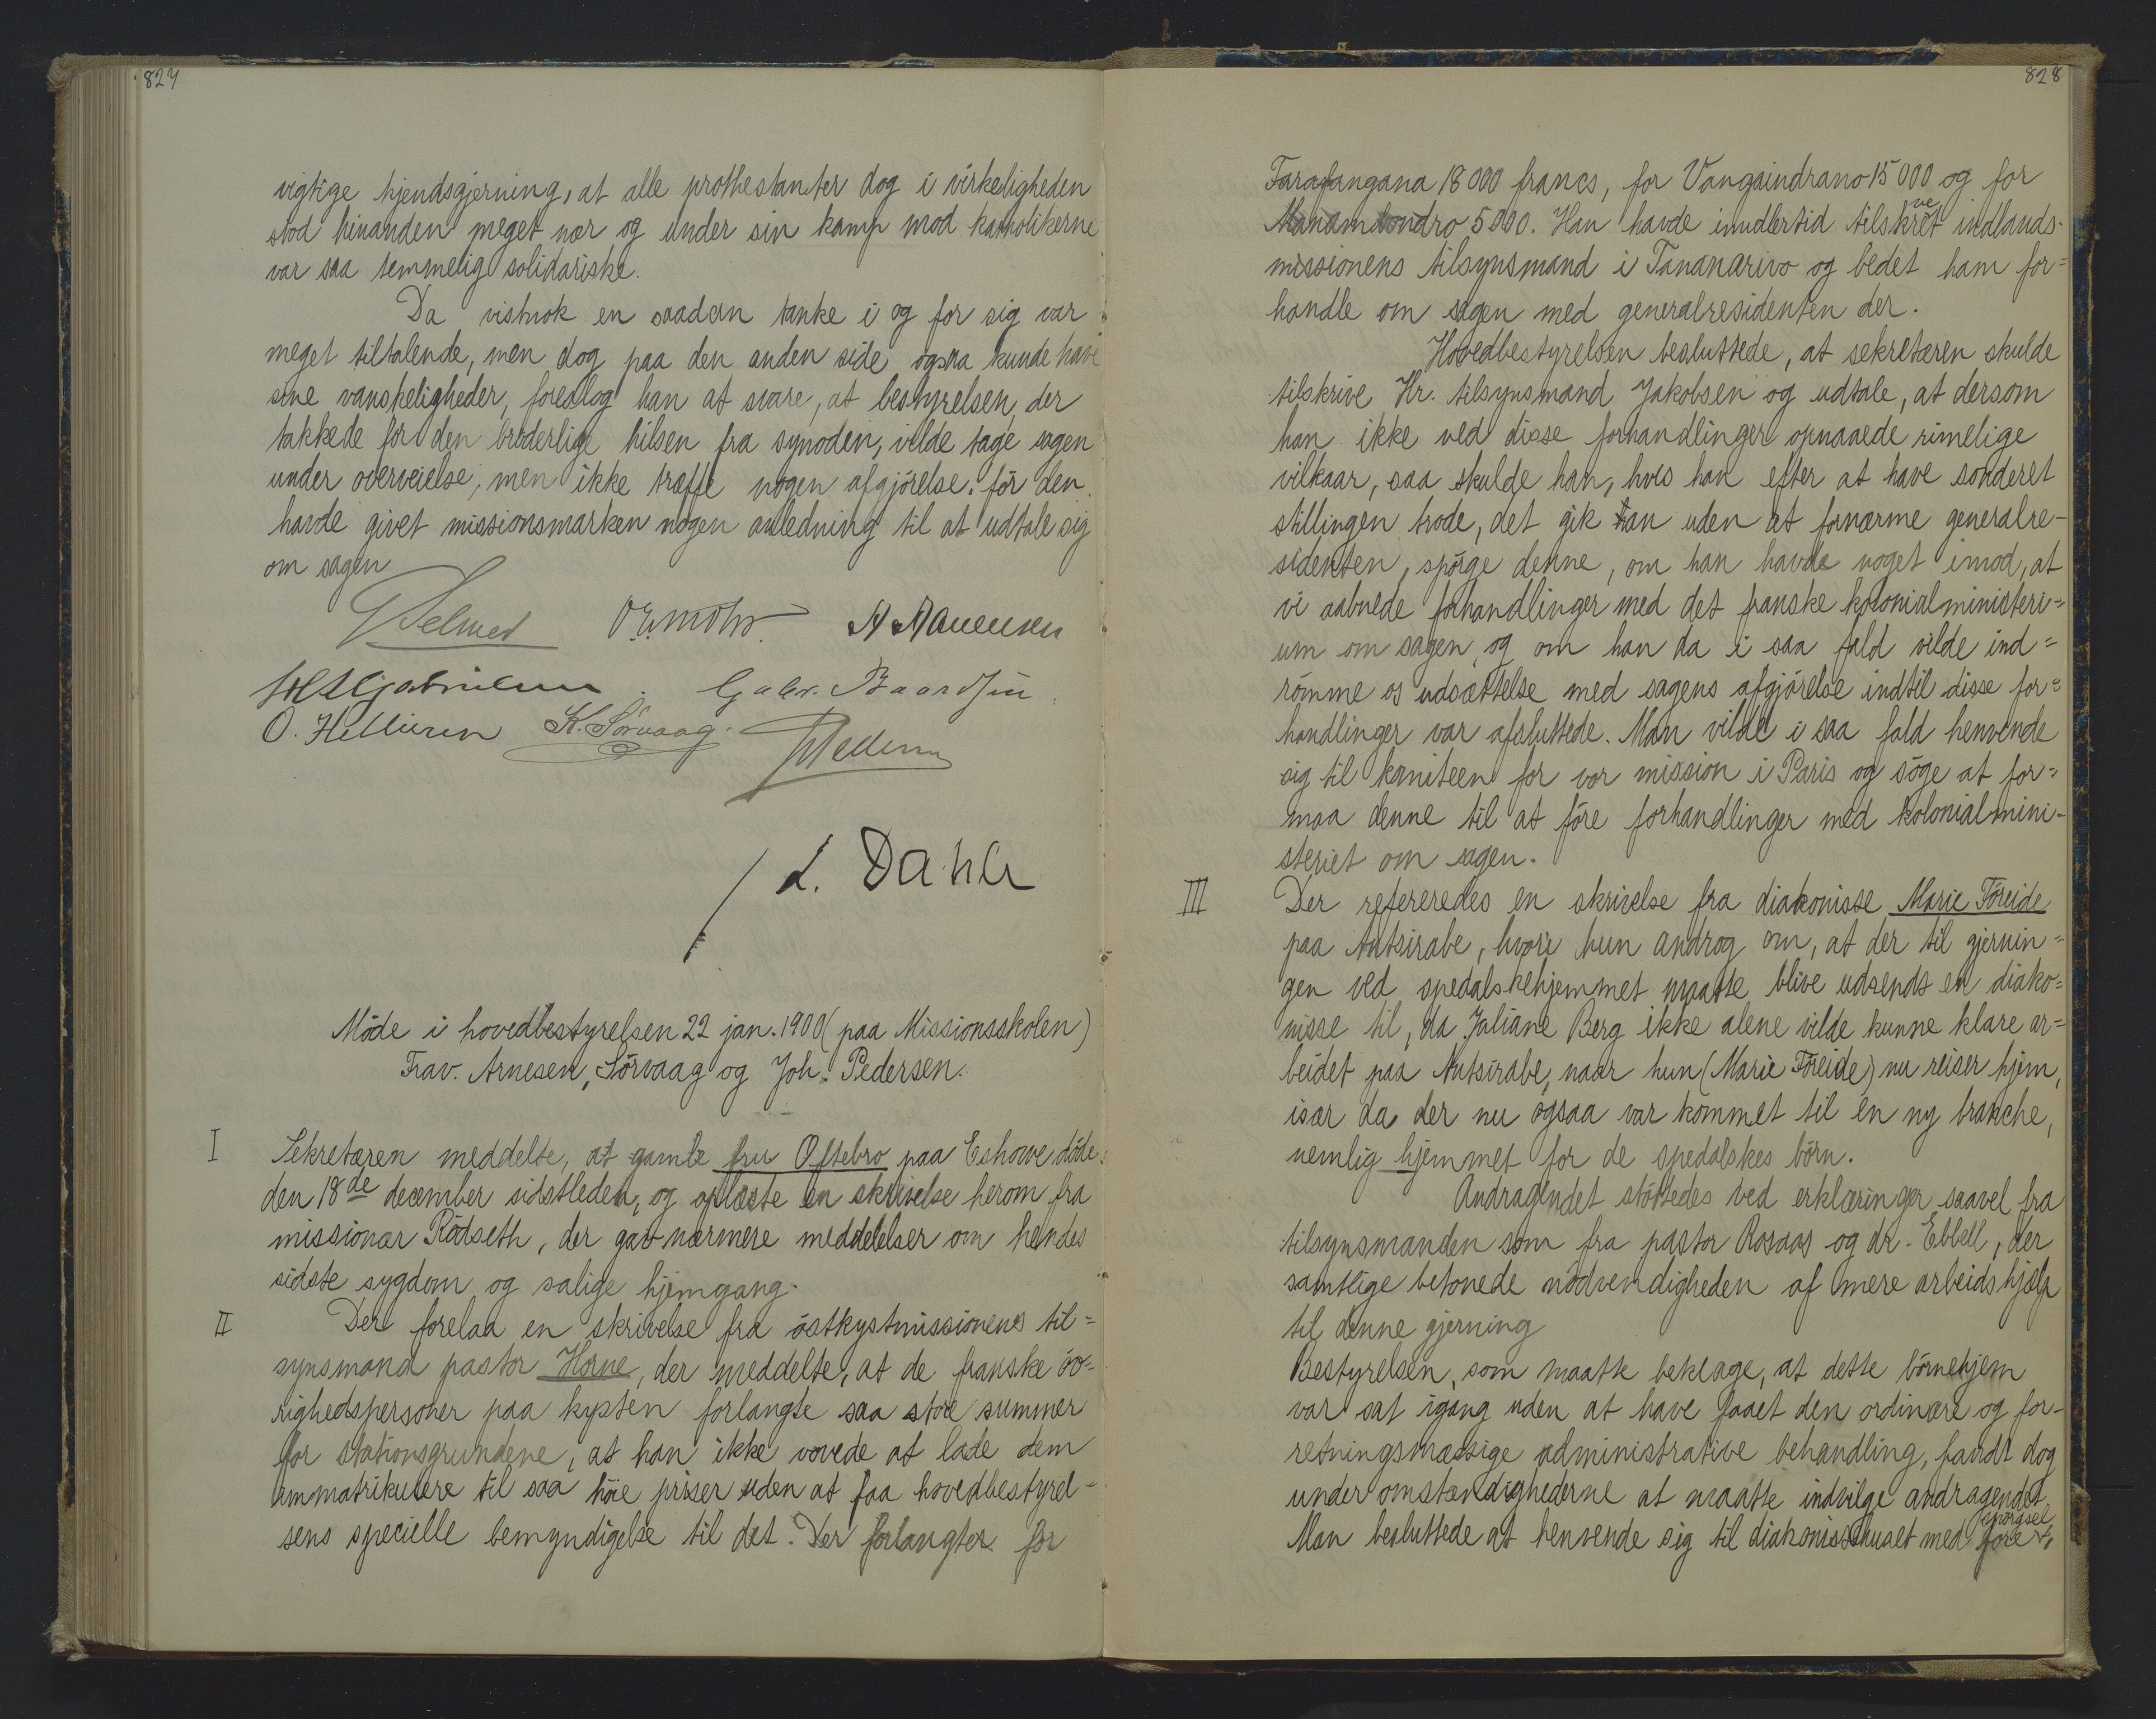 827
vigtige kjendsgjerning, at alle prothestanter dog i virkeligheden
stod hinanden meget nær og under sin kamp mod katholikerne
var saa temmelig solidariske.
Da vistnok en saadan tanke i og for sig var
meget tiltalende, men dog paa den anden side ogsaa kunde have
sine vanskeligheder, foreslog han at svare, at bestyrelsen, der
takkede for den broderlige hilsen fra synoden, vilde tage sagen
under overveielse, men ikke træffe nogen afgjörelse, för den
havde givet missionsmarken nogen anledning til at udtale sig
om sagen
O. Helliesen K. Sörvaag
L. Dahle
Möde i hovedbestyrelsen 22 jan. 1900 (paa Missionsskolen)
Frav. Arnesen, Sörvaag og Joh. Pedersen.
I Sekretæren meddelte, at gamle fru Oftebro paa Eshowe döde
den 18de december sidstleden, og oplæste en skrivelse herom fra
missionær Rödseth, der gav nærmere meddelelser om hendes
sidste sygdom og salige hjemgang.
II Der forelaa en skrivelse fra östkystmissionens til=
synsmand pastor Horne, der meddelte, at de franske öv=
righedspersoner paa kysten forlangte saa store summer
for stationsgrundene, at han ikke vovede at lade dem
immatrikulere til saa höie priser uden at faa hovedbestyrel-
sens specielle bemyndigelse til det. Der forlangtes for
828
Farafangana 18000 francs, for Vangaindrano 15000 og for
Manambondro 5000. Han havde imidlertid tilskrevet indlands-
missionens tilsynsmand i Tananarivo og bedet ham for=
handle om sagen med generalresidenten der.
Hovedbestyrelsen besluttede, at sekretæren skulde
tilskrive Hr. tilsynsmand Jakobsen og udtale, at dersom
han ikke ved disse forhandlinger opnaaede rimelige
vilkaar, saa skulde han, hvis han efter at have sonderet
stillingen trode, det gik an uden at fornærme generalre-
sidenten, spörge denne, om han havde noget imod, at
vi aabnede forhandlinger med det franske kolonialministeri=
um om sagen, og om han da i saa fald vilde ind=
römme os udsættelse med sagens afgjörelse indtil disse for=
handlinger var afsluttede. Man vilde i saa fald henvende
sig til komiteen for vor mission i Paris og söge at for=
maa denne til at före forhandlinger med kolonialmini-
steriet om sagen.
III Der refereredes en skrivelse fra diakonisse Marie Föreide
paa Antsirabe, hvori hun androg om, at der til gjernin=
gen ved spedalskehjemmet maatte blive udsendt en diako=
nisse til, da Juliane Berg ikke alene vilde kunne klare ar=
beidet paa Antsirabe, naar hun (Marie Föreide) nu reiser hjem,
især da der nu ogsaa var kommet til en ny branche,
nemlig hjemmet for de spedalskes börn.
Andragendet stöttedes ved erklæringer saavel fra
tilsynsmanden som fra pastor Rosaas og dr. Ebbell, der
samtlige betonede nödvendigheden af mere arbeidshjælp
til denne gjerning
Bestyrelsen, som maatte beklage, at dette börnehjem
var sat igang uden at have faaet den ordinære og for-
retningsmæssige administrative behandling, fandt dog
under omstændighederne at maatte indvilge andragendet.
Man besluttede at henvende sig til diakonissehuset med forespörgsel